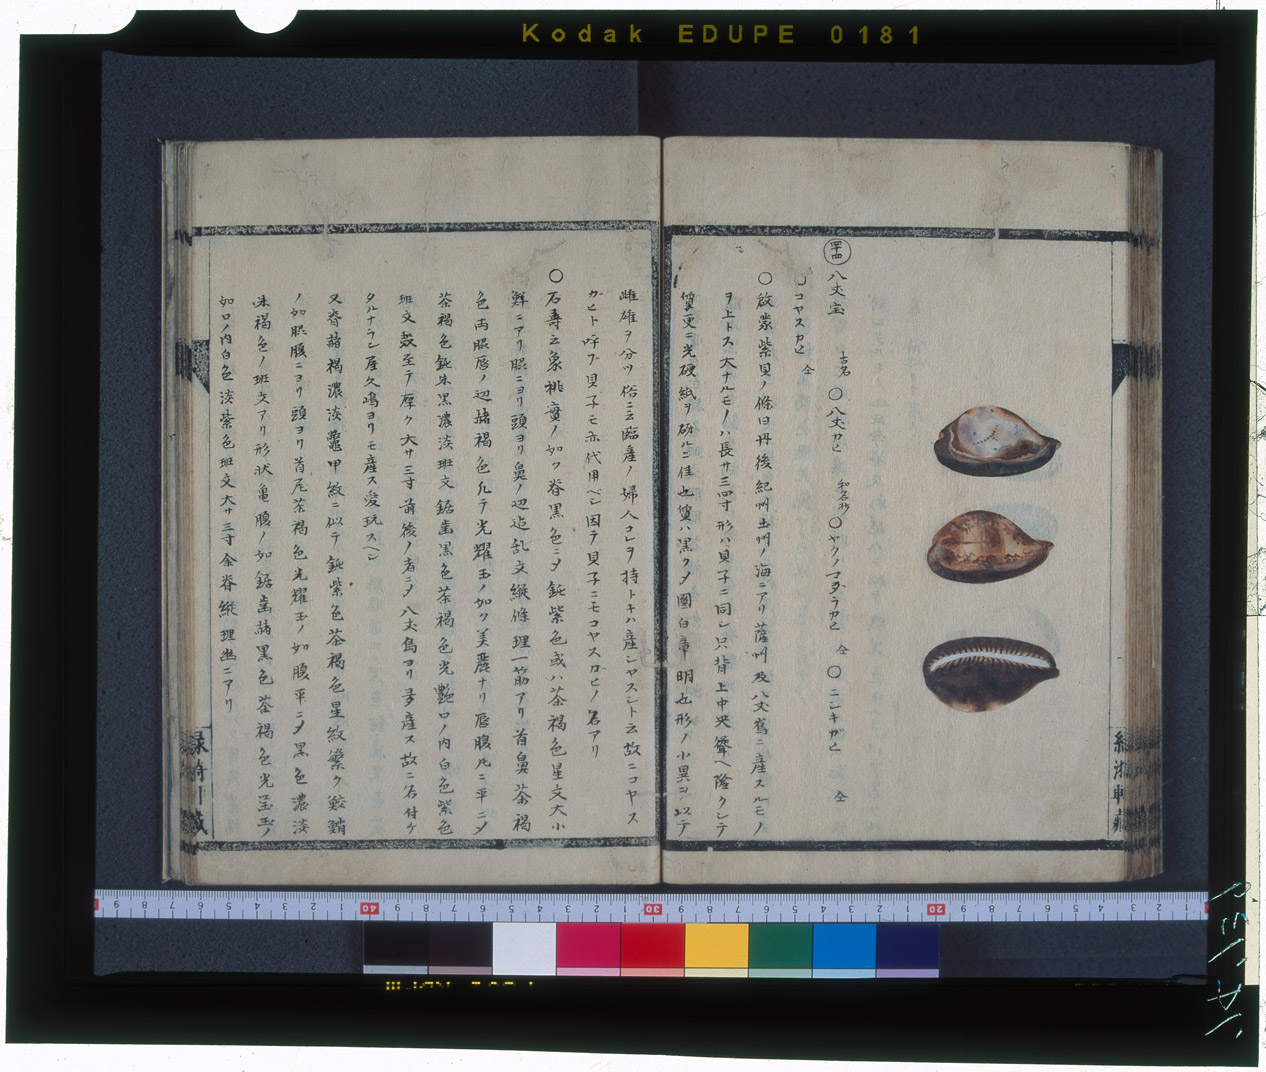 Kodak EDUPE 0181
四十四
八丈宝 古名 ○八丈カヒ 和名抄 ○ヤクノマダラカヒ 仝 ○ニシキガヒ 仝
○コヤスカヒ 仝
○啟蒙紫貝ノ條曰丹後紀州土州ノ海ニアリ薩州及八丈嶌ニ産スルモノ
ヲ上トス大ナルモノハ長サ三四寸形ハ貝子ニ同シ只背上中央聳ヘ隆クシテ
質更ニ光硬紙ヲ砑ルニ佳也質ハ黒クメ圓白章明也形ノ小異ヲ以テ
雌雄ヲ分ツ俗ニ云臨産ノ婦人コレヲ持トキハ産シヤスシト云故ニコヤス
ガヒト呼ブ貝子モ亦代用ベシ因テ貝子ニモコヤスガヒノ名アリ
○石寿云象桃實ノ如ク脊黒色ニメ鈍紫色或ハ茶褐色星文大小
鮮ニアリ眼ニヨリ頭ヨリ鼻ノ辺迠乱文縦條理一筋アリ首鼻茶褐
色両眼唇ノ辺赭褐色凢テ光耀玉ノ如ク美麗ナリ唇腹凢ニ平ニメ
茶褐色鈍朱黒濃淡班文鋸歯黒色茶褐色光艶口ノ内白色紫色
班文数至テ厚ク大サ三寸前後ノ者ニメ八丈島ヨリ多産ス故ニ名付ケ
タルナラン屋久嶋ヨリモ産ス愛玩スヘシ
又脊赭褐濃淡鼈甲紋ニ似テ鈍紫色茶褐色星紋繁ク鮫鞘
ノ如眼腹ニヨリ頭ヨリ首尾茶褐色光耀玉ノ如腹平ニメ黒色濃淡
朱褐色ノ班文アリ形状亀腹ノ如鋸歯赭黒色茶褐色光呈玉ノ
如口ノ内白色淡紫色班文大サ三寸余脊縦理幽ニアリ